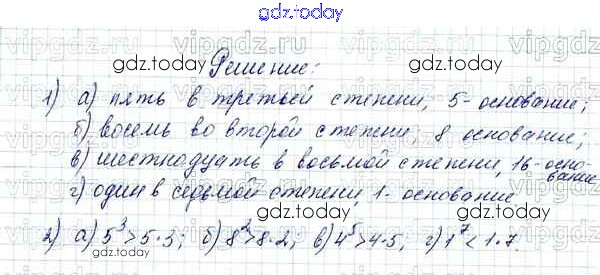 gdz.today
Решение:
gdz.today gdz.today
1) а) пять в третьей степени, 5 - основание;
б) восемь во второй степени, 8 основание;
в) шестнадцать в восьмой степени, 16 - осно-
вание
г) один в седьмой степени, 1 - основание.
gdz.today gdz.today
2) а) 5³ > 5·3; б) 8² > 8·2; в) 4⁵ > 4·5; г) 1⁷ < 1·7.
gdz.today